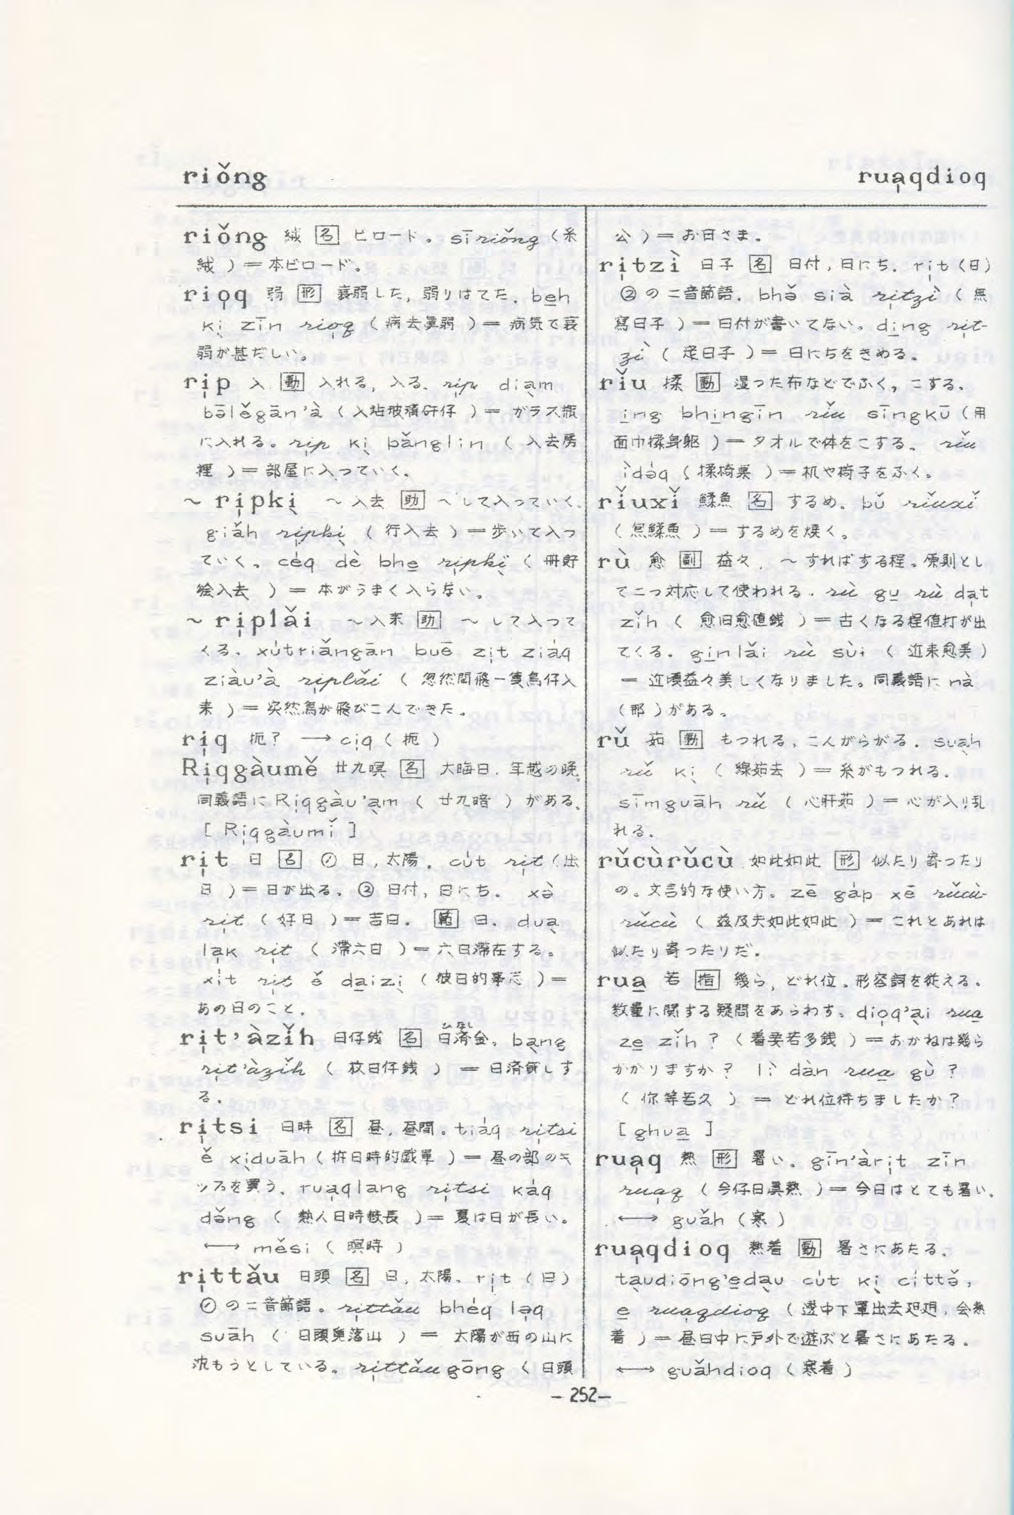 riǒng
rua̩qdioq
riǒng 絨 [名] ビロード。sīriǒng (糸
絨 ) = 本ビロード。
rio̩q 弱 [形] 衰弱した, 弱りはてた. be̲h
ki̩ zīn rio̩q ( 病去眞弱 ) = 病気で衰
弱が甚だしい。
ri̩p 入 [動] 入れる, 入る. ri̩p di̩am
bōlěgān'à ( 入坫玻璃矸仔 ) = ガラス瓶
に入れる。ri̩p ki̩ bǎnglin ( 入去房
裡 ) = 部屋に入っていく.
~ ri̩pki̩ ~入去 [助] ~して入っていく.
giǎh ri̩pki̩ ( 行入去 ) = 歩いて入っ
ていく。céq dè bhe̲ ri̩pki̩ ( 冊貯
𣍐入去 ) = 本がうまく入らない。
~ ri̩plǎi ~入来 [助] ~ して入って
くる. xútriāngān buē zi̩t ziáq
ziàu'à ri̩plǎi ( 忽然間飛一隻鳥仔入
来 ) = 突然鳥が飛びこんできた.
ri̩q 扼? → ci̩q ( 扼 )
Ri̩qgàumě 廿九暝 [名] 大晦日. 年越の晩.
同義語に Ri̩qgàu'a̩m ( 廿九暗 ) がある.
[ Ri̩qgàumǐ ]
ri̩t 日 [名] ① 日, 太陽. cút ri̩t (出
日 ) = 日が出る. ② 日付, 日にち. xò
ri̩t ( 好日 ) = 吉日. [範] 日. dua̩
la̩k ri̩t ( 滯六日 ) = 六日滞在する。
xít ri̩t ě da̲izi̩ ( 彼日的事志 ) =
あの日のこと.
ri̩t'àzǐh 日仔銭 [名] 日済金. ba̩ng
ri̩t'àzǐh ( 放日仔銭 ) = 日済貸しす
る.
ri̩tsi 日時 [名] 昼, 昼間. tiáq ri̩tsi
ě xi̩duāh ( 拆日時的戯單 ) = 昼の部のキ
ップを買う. rua̩qlang ri̩tsi káq
dǒng ( 熱人日時較長 ) = 夏は日が長い。
←→ měsi ( 暝時 )
ri̩ttǎu 日頭 [名] 日, 太陽. ri̩t (日)
① の二音節語。ri̩ttǎu bhéq lo̩q
suāh ( 日頭覓落山 ) = 太陽が西の山に
沈もうとしている。ri̩ttǎugōng ( 日頭
公 ) = お日さま.
ri̩tzì 日子 [名] 日付, 日にち. ri̩t (日)
② の二音節語. bhǒ sià ri̩tzì ( 無
寫日子 ) = 日付が書いてない。di̲ng ri̩t-
zì ( 定日子 ) = 日にちをきめる。
rǐu 揉 [動] 湿った布などでふく, こする.
i̲ng bhi̲ngīn rǐu sīngkū (用
面巾揉身軀 ) = タオルで体をこする. rǐu
ìdóq ( 揉椅桌 ) = 机や椅子をふく。
rǐuxǐ 鰇魚 [名] するめ. bǔ rǐuxǐ
( 炰鰇魚 ) = するめを焼く。
rù 愈 [副] 益々, ~すればする程。原則とし
て二つ対応して使われる. rù gu̲ rù da̩t
zǐh ( 愈旧愈値銭 ) = 古くなる程値打が出
てくる. gi̲nlǎi rù sùi ( 近来愈美 )
= 近頃益々美しくなりました。同義語に nà
(那 ) がある。
rǔ 茹 [動] もつれる, こんがらがる. sua̩h
rǔ ki̩ ( 線茹去 ) = 糸がもつれる.
sīmguāh rǔ ( 心肝茹 ) = 心が入り乱
れる.
rǔcùrǔcù 如此如此 [形] 似たり寄ったり
の。文言的な使い方。zē gáp xē rǔcù-
rǔcù ( 玆及夫如此如此 ) = これとあれは
似たり寄ったりだ.
rua̲ 若 [指] 幾ら, どれ位. 形容詞を從える.
数量に関する疑問をあらわす. dioq'ài rua̲
ze̲ zǐh ? ( 着要若多銭 ) = おかねは幾ら
かかりますか? lì dàn rua̲ gù ?
( 你等若久 ) = どれ位待ちましたか?
[ ghua̲ ]
rua̩q 熱 [形] 暑い. gīn'àri̩t zīn
rua̩q ( 今仔日眞熱 ) = 今日はとても暑い.
←→ guǎh (寒 )
rua̩qdioq 熱着 [動] 暑さにあたる.
ta̩udiōng'e̲da̩u cút ki̩ cíttǒ,
e̲ rua̩qdioq ( 透中下罩出去𨑨迌, 会熱
着 ) = 昼日中に戸外で遊ぶと暑さにあたる.
←→ guǎhdioq ( 寒着 )
－ 252－